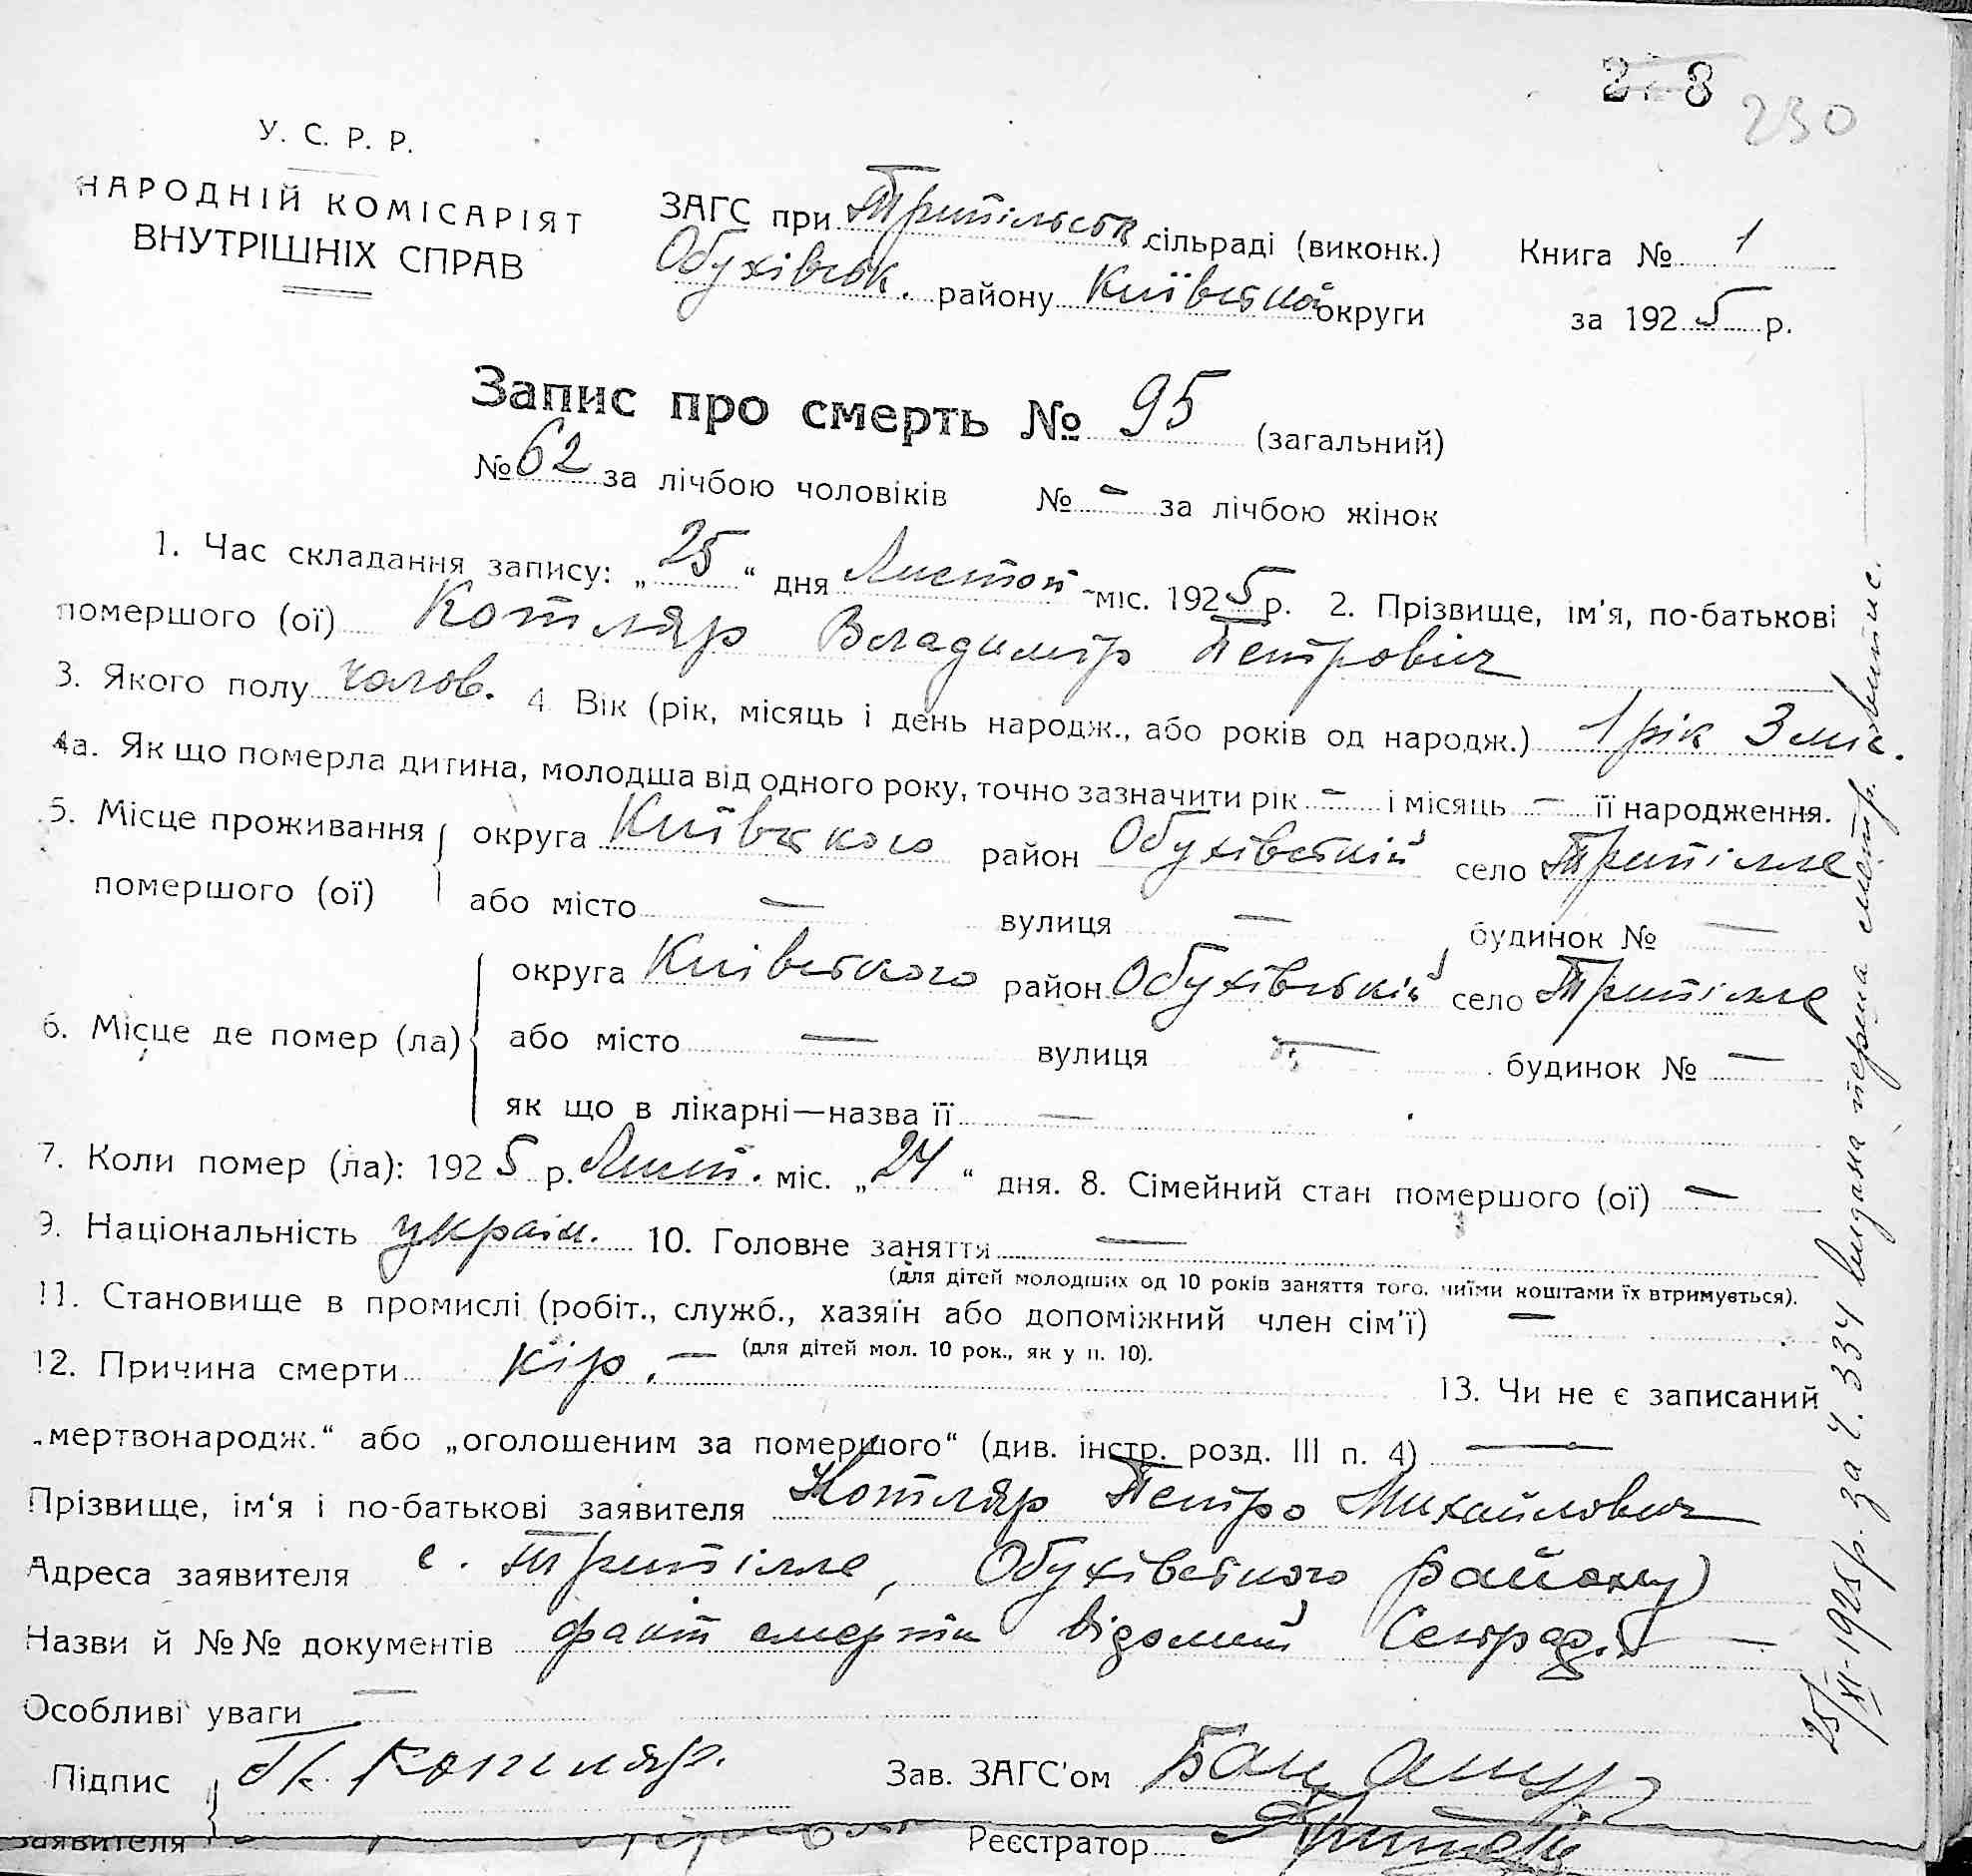 2 8 230
У. С. Р. Р.
НАРОДНІЙ КОМІСАРІЯТ
ВНУТРІШНІХ СПРАВ
ЗАГС при Трипільськ. сільраді (виконк.) Книга № 1
Обухівськ. району Київської округи за 1925 р.
Запис про смерть № 95 (загальний)
№ 62 за лічбою чоловіків № – за лічбою жінок
1. Час складання запису: „25“ дня Листоп. міс. 1925 р. 2. Прізвище, ім'я, по-батькові
помершого (ої) Котляр Владимір Петровіч
3. Якого полу чолов. 4 Вік (рік, місяць і день народж., або років од народж.) 1 рік 3 міс.
4а. Як що померла дитина, молодша від одного року, точно зазначити рік – і місяць – її народження.
5. Місце проживання округа Київського район Обухівський село Трипілле
помершого (ої) або місто – вулиця – будинок № –
округа Київського район Обухівський село Трипілле
6. Місце де помер (ла) або місто – вулиця – будинок № –
як що в лікарні—назва її –
7. Коли помер (ла): 1925 р. Лист. міс. „24“ дня. 8. Сімейний стан помершого (ої) –
9. Національність україн. 10. Головне заняття –
(для дітей молодших од 10 років заняття того, чиїми коштами їх втримується).
11. Становище в промислі (робіт., служб., хазяїн або допоміжний член сім'ї) –
(для дітей мол. 10 рок., як у п. 10).
12. Причина смерти кір. – 13. Чи не є записаний
„мертвонародж.“ або „оголошеним за помершого“ (див. інстр. розд. III п. 4) –
Прізвище, ім'я і по-батькові заявителя Котляр Петро Михайлович
Адреса заявителя с. Трипілле, Обухівського району
Назви й №№ документів факт смерти відомий Сельраді –
Особливі уваги –
Підпис П. Котляр. Зав. ЗАГС'ом
заявителя Реєстратор
25/XI-1925 р. за Ч. 334 видана перша смертн. випис.